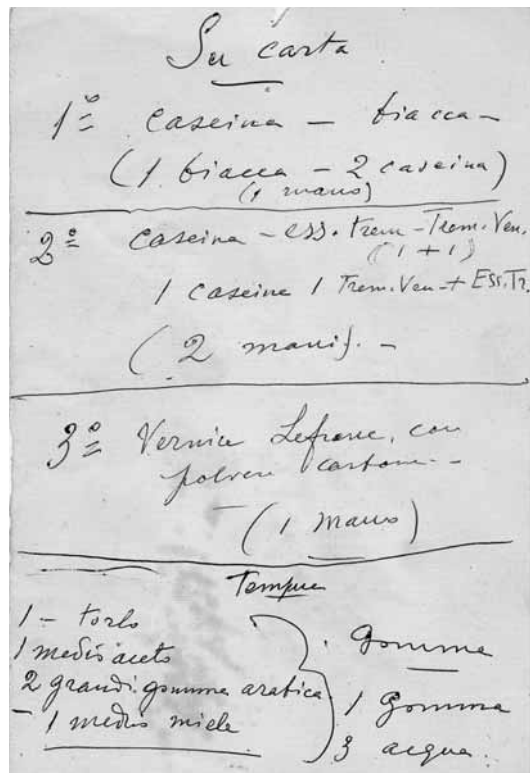 Su carta
1º caseina - biacca -
(1 biacca - 2 caseina)
(1 mano)
2º caseina - ess. trem - Trem. Ven.
(1 + 1)
1 caseina 1 Trem. Ven + Ess. Tr.
(2 mani). -
3º Vernice Lefranc, con
polvere carbone -
(1 mano)
Tempera
1 - torlo
1 medio aceto
2 grandi gomma arabica
- 1 medio miele
Gomma
1 Gomma
3 acqua.